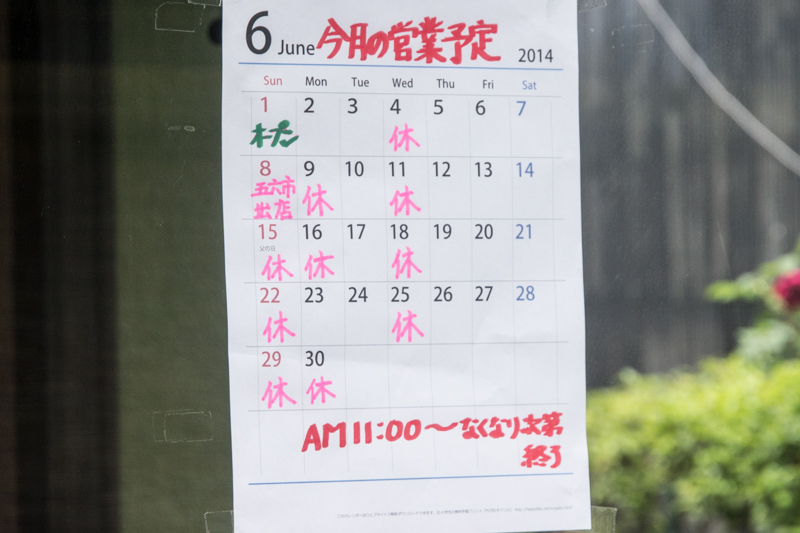 6 June 今月の営業予定 2014
Sun Mon Tue Wed Thu Fri Sat
1 2 3 4 5 6 7
オープン 休
8 9 10 11 12 13 14
五六市 休 休
出店
15 16 17 18 19 20 21
父の日
休 休 休
22 23 24 25 26 27 28
休 休
29 30
休 休
AM11:00〜なくなり次第
終了